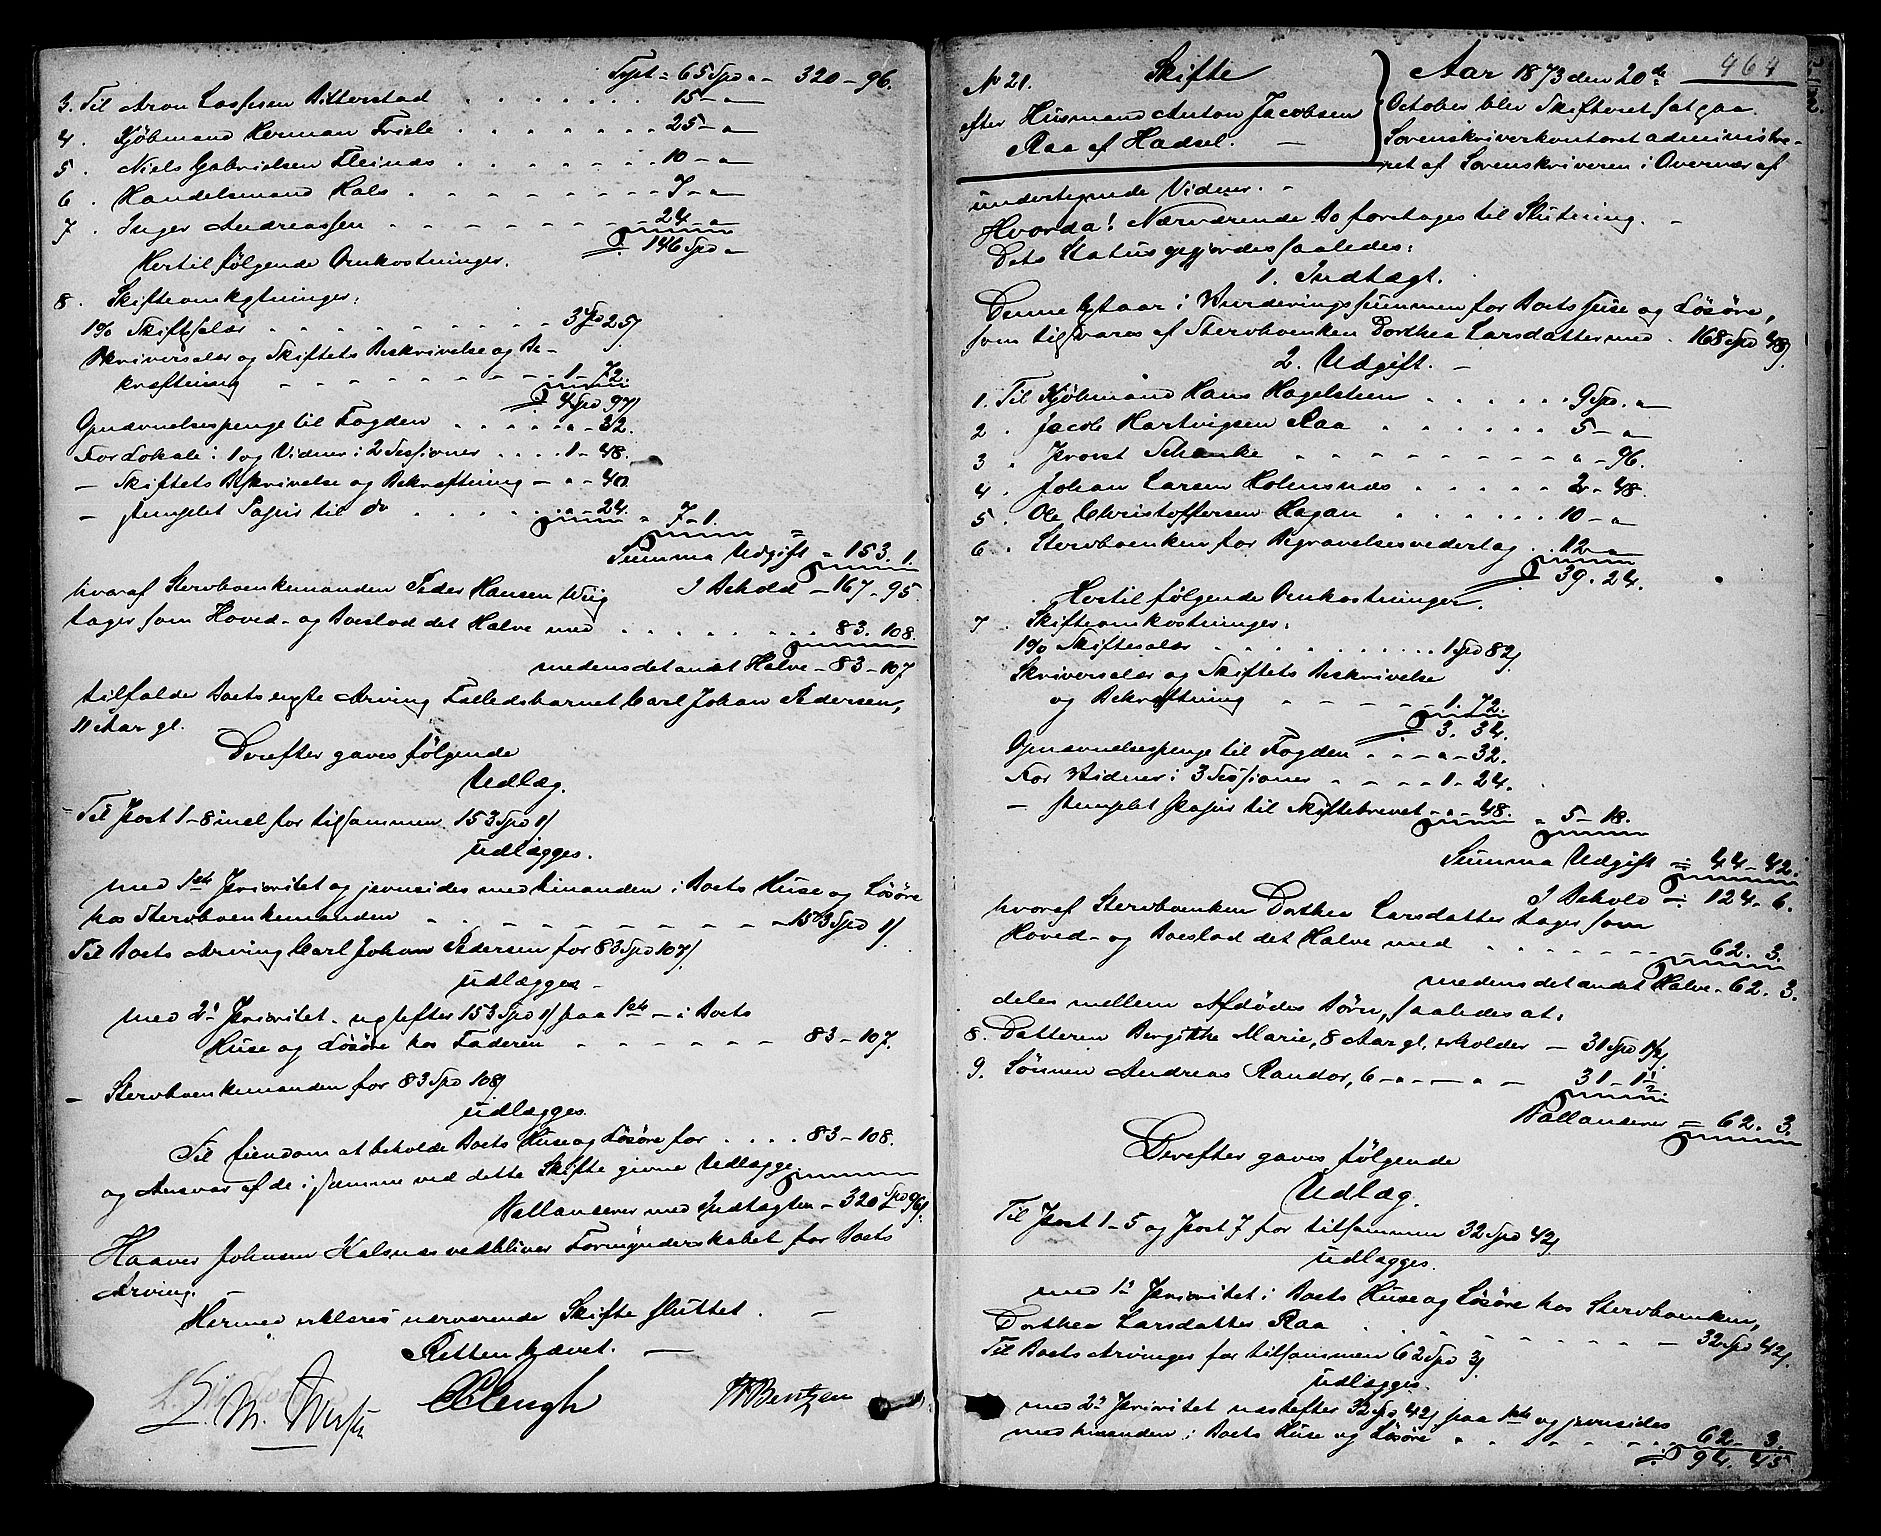 Trpt = 65 Spd „ – 320 – 96.
3. Til Aron Lassesen Bitterstad . . . . . . . 15 – „
4 . Kjøbmand Herman Friele . . . . . . . 25 – „
5 . Niels Gabrielsen Fleinæs . . . . . . 10 – „
6 . Handelsmand Hals . . . . . . . . 7 – „
7 . Inger Andreassen . . . . . . . 24 – „
146 Spd „
Hertil følgende Omkostninger.
8 . Skifteomkostninger:
1% Skiftesalær . . . . . . . . . 3 Spd 25 /
Skriversalær og Skiftets Beskrivelse og Be-
kræftning . . . . . . . . . 1 – 72.
4 Spd 97 /
Opnævnelsespenge til Fogden . . . . . „ – 32.
For Lokale i 1 og Vidner i 2 Sessioner . . . . 1 – 48.
– Skiftets Beskrivelse og Bekræftning – „ – 40
– stemplet Papir til do . . . . . „ – 24. „ 7 – 1.
Summa Udgift = 153. 1.
I Behold – 167 – 95
hvoraf Stervboenkemanden Peder Hansen Wiig
tager som Hoved- og Boeslod det Halve med . . . . . . . 83. 108.
medens det andet Halve – 83 – 107
tilfalde Boets eneste Arving Fælledsbarnet Carl Johan Pedersen,
11 Aar gl.
Derefter gaves følgende
Udlæg.
– Til Post 1 – 8 incl for tilsammen 153 Spd 1 /
udlægges.
med 1ste Prioritet og jevnsides med hinanden i Boets Huse og Løsøre
hos Stervboenkemanden . . . . . . . . . – 153 Spd 1 /
Til Boets Arving Carl Johan Pedersen for 83 Spd 107 /
udlægges –
med 2den Prioritet – næstefter 153 Spd 1 / paa 1ste – i Boets
Huse og Løsøre hos Faderen . . . . . . 83 – 107.
– Stervboenkemanden for 83 Spd 108 /
udlægges.
Til Eiendom at beholde Boets Huse og Løsøre for . . . . 83 – 108.
og Ansvar af de i samme ved dette Skifte givne Udlægge
Ballancerer med Indtægten – 320 Spd 96 /
Haaver Johnsen Kalsnæs vedbliver Formynderskabet for Boets
Arving.
Hermed erklæres nærværende Skifte sluttet. –
Retten hævet. –
Bentzen
464
№ 21. Skifte
efter Husmand Anton Jacobsen
Raa af Hadsel. –
Aar 1873 den 20de
October blev Skifteret sat paa
Sorenskriverkontoret administre-
ret af Sorenskriveren i Overvær af
undertegnede Vidner. –
Hvorda! Nærværende Bo foretages til Slutning. –
Dets Status opgjordes saaledes:
1. Indtægt.
Denne bestaar i Vurderingssummen for Boets Huse og Løsøre,
som tilsvares af Stervboenken Dorthea Larsdatter med . 168 Spd 48 /
2. Udgift. –
1. Til Kjøbmand Hans Hagelsteen . . . . . . 9 Spd. „
2 . Jacob Hartvigsen Raa . . . . . . 5 – „
3 . Provst Schanke . . . . . . . . . „ – 96.
4 . Johan Larsen Holmsnæs . . . . . 2 – 48.
5 . Ole Christoffersen Hagan . . . . . . 10 – „
6 . Stervboenken for Begravelsesvederlag . . 12 – „
39. 24.
Hertil følgende Omkostninger.
7 . Skifteomkostninger:
1% Skiftesalær . . . . . . . . . 1 Spd 82 /
Skriversalær og Skiftets Beskrivelse
og Bekræftning . . . . . . 1. 72.
3. 34.
Opnævnelsespenge til Fogden . . . „ – 32.
For Vidner i 3 Sessioner . . . . . 1 – 24.
– stemplet Papir til Skiftebrevet – „ – 48. „ 5 – 18.
Summa Udgift = 44 – 42.
I Behold – 124 – 6.
hvoraf Stervboenken Dorthea Larsdatter tager som
Hoved- og Boeslod det Halve med . . . . . . . . 62. 3.
medens det andet Halve – 62. 3.
deles mellem Afdødes Børn, saaledes at:
8. Datteren Bergithe Marie, 8 Aar gl. erholder – 31 Spd 1½ /
9. Sønnen Andreas Randor, 6 – „ – „ – 31 – 1½
Ballancerer = 62. 3.
Derefter gaves følgende
Udlæg.
Til Post 1 – 5 og Post 7 for tilsammen 32 Spd 42 /
udlægges.
med 1ste Prioritet i Boets Huse og Løsøre hos Stervboenken,
Dorthea Larsdatter Raa . . . . . . . . – 32 Spd 42 /
Til Boets Arvinger for tilsammen 62 Spd 3 /
udlægges.
med 2den Prioritet næstefter 32 Spd 42 / paa 1ste og jevnsides
med hinanden i Boets Huse og Løsøre . . . . . . 62. 3.
94. 45.